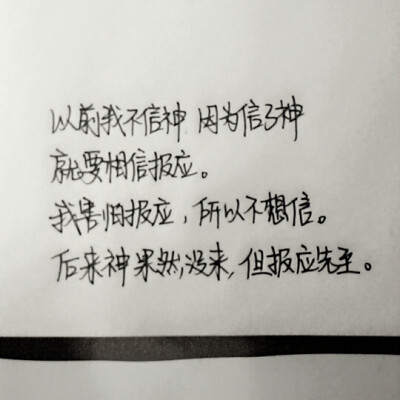 以前我不信神 因为信了神
就要相信报应。
我害怕报应，所以不想信。
后来神果然没来，但报应先至。